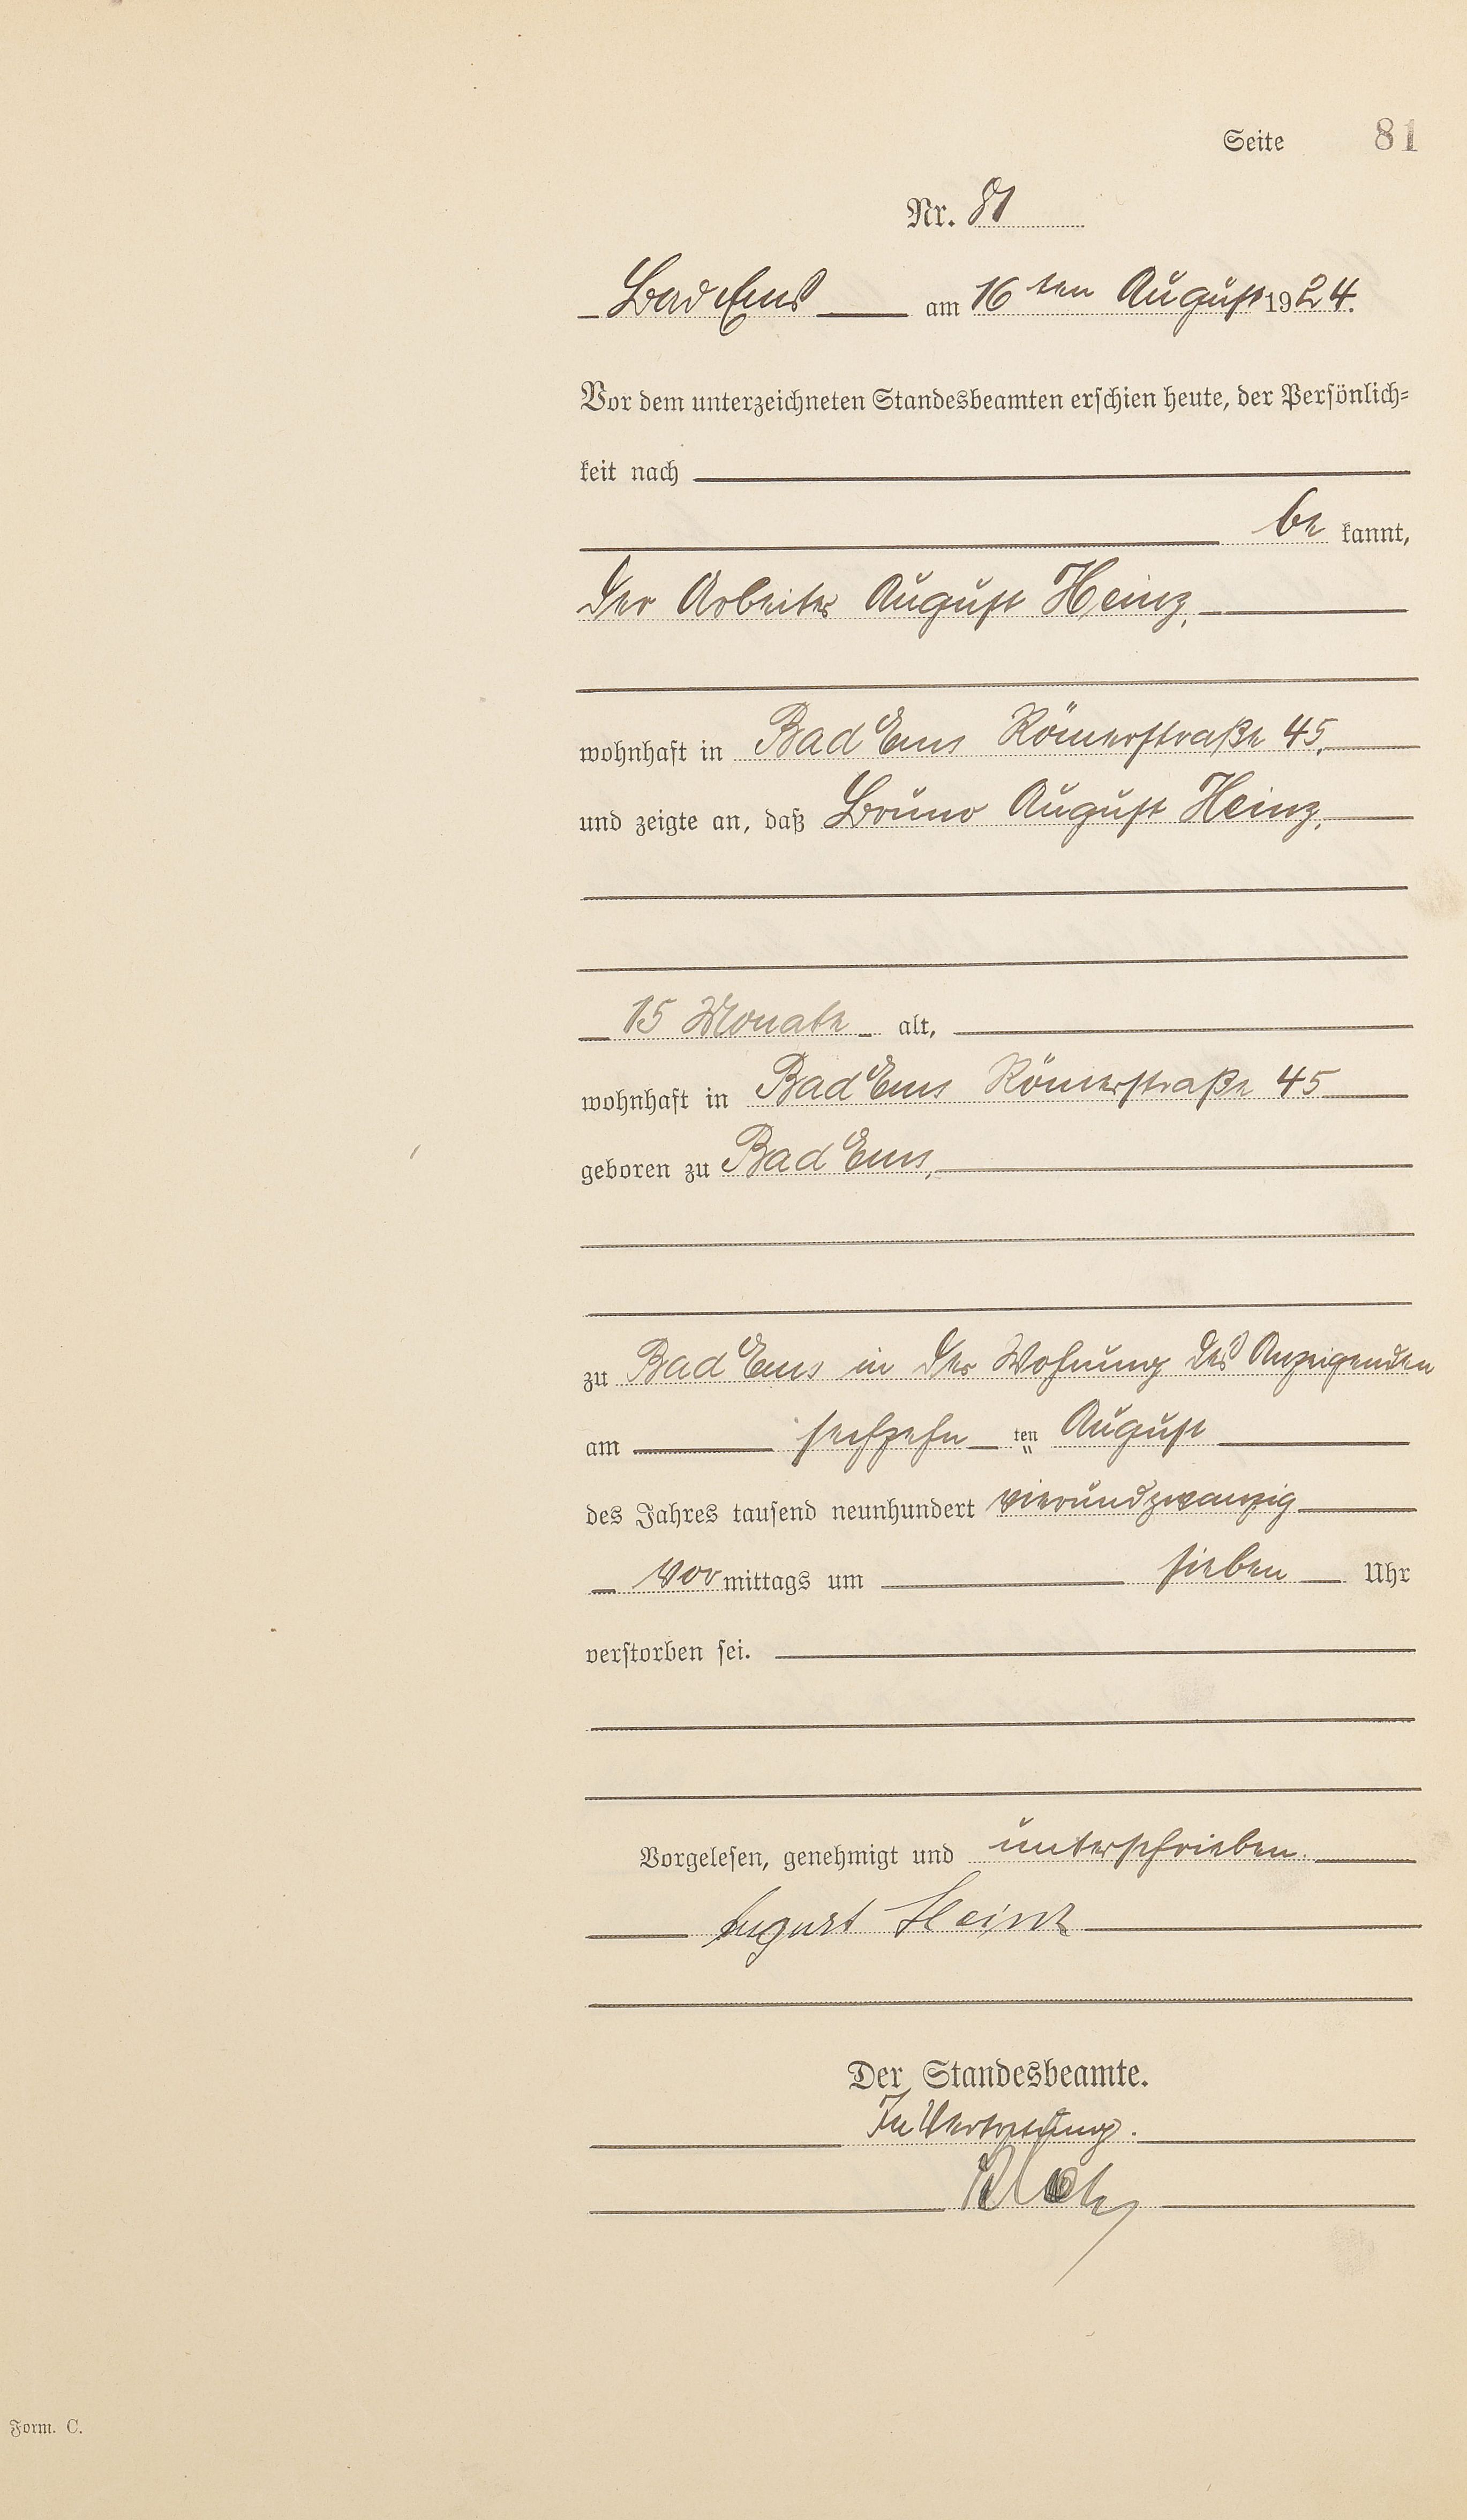 Seite 81
Nr. 81
Bad Ems am 16 ten August 1924.
Vor dem unterzeichneten Standesbeamten erschien heute, der Persönlich=
keit nach
be kannt,
der Arbeiter August Heinz,
wohnhaft in Bad Ems Römerstraße 45,
und zeigte an, daß Bruno August Heinz,
15 Monate alt,
wohnhaft in Bad Ems Römerstraße 45
geboren zu Bad Ems,
zu Bad Ems in der Wohnung des Anzeigenden
am sechzehn ten August
des Jahres tausend neunhundert vierundzwanzig
Vor mittags um sieben Uhr
verstorben sei.
Vorgelesen, genehmigt und unterschrieben.
August Heinz
Der Standesbeamte.
In Vertretung.
Form. C.